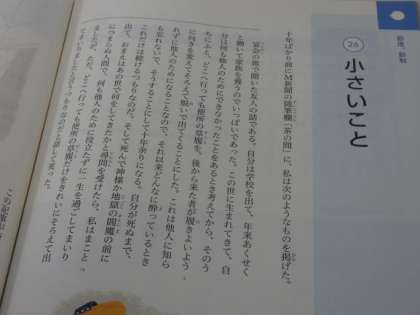 節度、節制
26
小さいこと
十年ばかり前にM新聞の随筆欄「茶の間」に、私は次のようなものを掲げた。
宴会の席で聞いた友人の話である。自分は学校を出て、年来あくせく
と働いて家族を養うのでいっぱいであった。この世に生まれてきて、自
分は何も他人のためにできなかったことをあるとき考えてから、そのう
ちにふと、どこへ行っても便所の草履を、後から来た者が履きよいよう
に向きを変えてそろえて脱いで出てくることにした。これは他人に知ら
れずに他人のためになることなので、それ以来どんなに酔っているとき
も忘れないで、そうすることにして十年余りになる。自分が死ぬまで、
これだけは続けるつもりなのだ。そして死んで神様か地獄の閻魔の前に
出て、おまえはあの世で何をしてきたかと尋問を受けたら、私はまこと
につまらぬ人間で、何も他人のために役立たずに一生を過ごしてまいり
ましたが、ただ、どこへ行っても便所の草履だけをきれいにそろえて出
てまいりましたと
この記事が